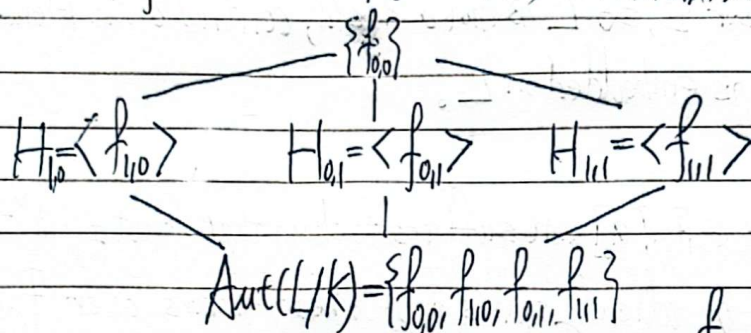 {f_{0,0}}
H_{1,0}=<f_{1,0}> H_{0,1}=<f_{0,1}> H_{1,1}=<f_{1,1}>
Aut(L/K)={f_{0,0}, f_{1,0}, f_{0,1}, f_{1,1}}